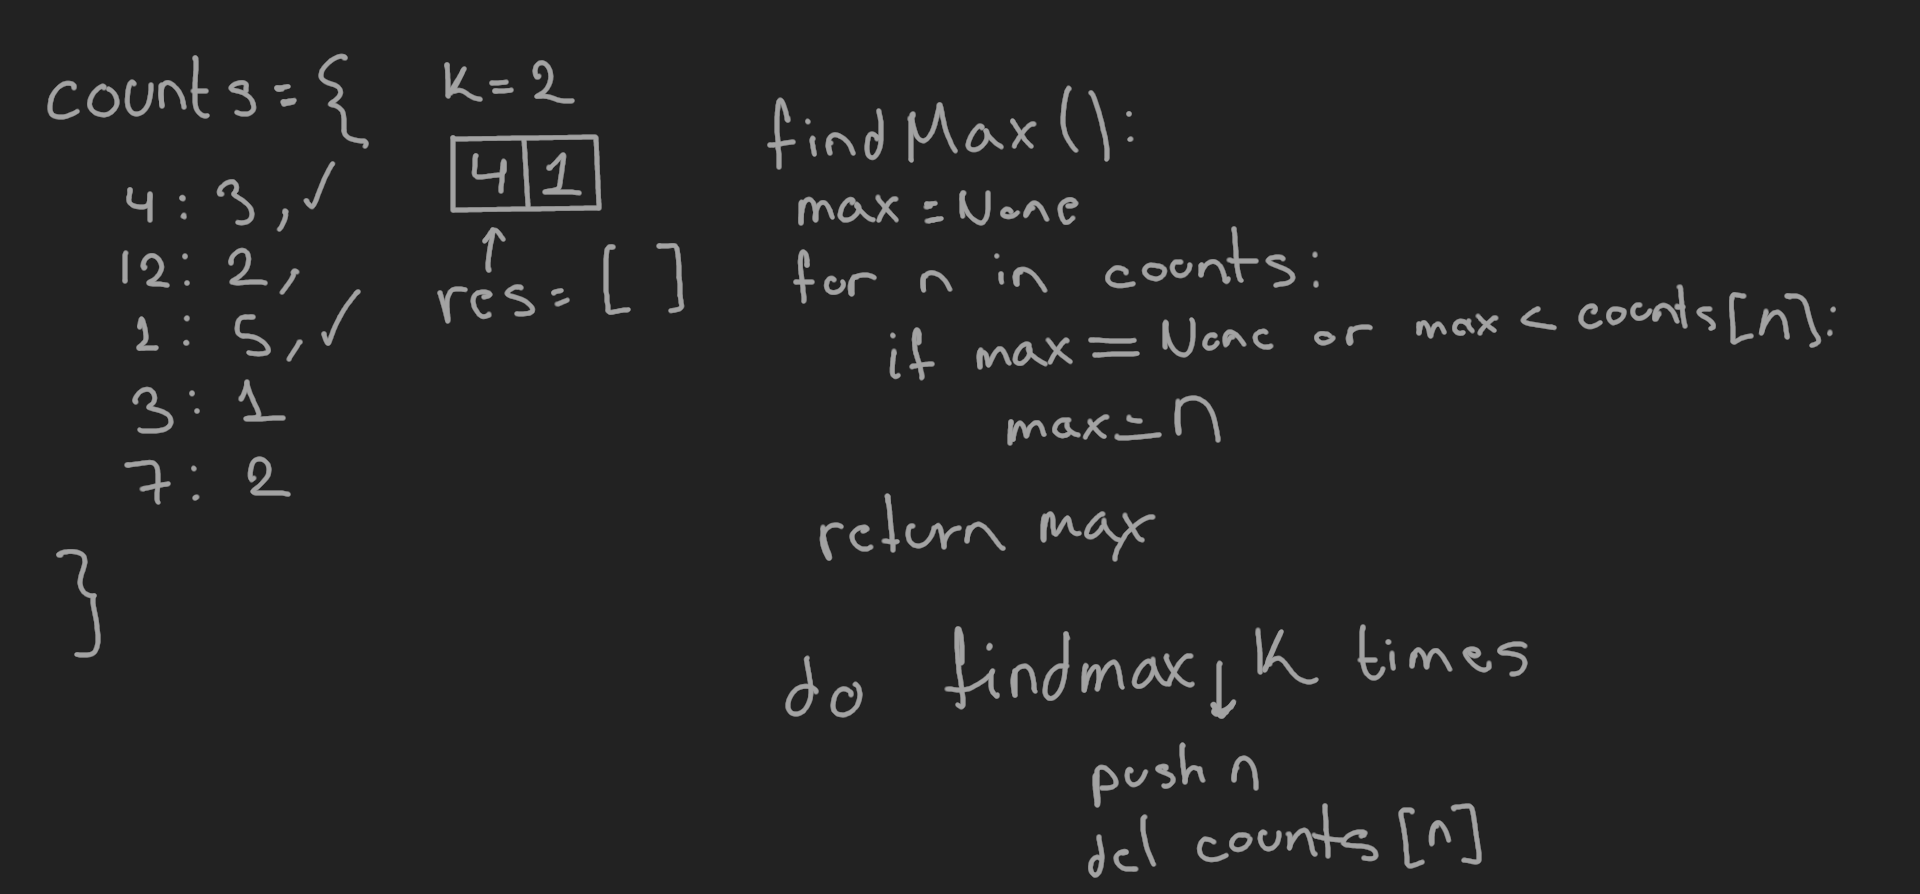 counts = {
4 : 3, ✓
12 : 2,
1 : 5, ✓
3 : 1
7 : 2
}
K = 2
4 1
↑
res = [ ]
findMax():
max = None
for n in counts:
if max == None or max < counts[n]:
max = n
return max
do findmax ↓ K times
push n
del counts[n]